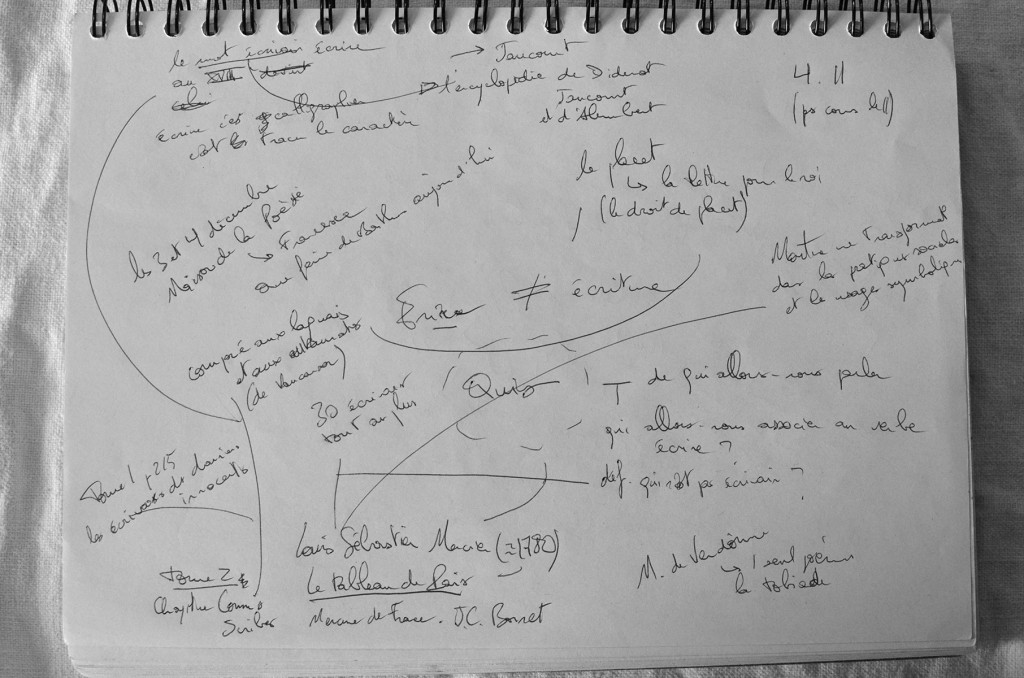 le mot écrivain écrire
au XVII devint
écrire c'est calligraphier
c'est tracer le caractère
→ Jaucourt
l'encyclopédie de Diderot
Jaucourt
et d'Alembert
4. 11
(ps cours le 11)
le placet
↳ la lettre pour le roi
(le droit de placet)
les 3 et 4 décembre
Maison de la Poésie
↳
que faire de Barthes aujourd'hui
Mercier ne transforme
dans la pratique sociale
et le usage symbolique
Écrire ≠ écriture
comparé aux laquais
et aux automates
(de Vaucanson)
30 écrivains
tout au plus
Quis
de qui allons-nous parler
qui allons-nous associer au verbe
écrire ?
déf. qui n'est pas écrivain ?
Tome 1 p 215
les écrivains des charniers
innocents
Louis Sébastien Mercier (≈1780)
Le tableau de Paris
Mercure de France. J.C. Bonnet
Tome 2
Chapitre Commis
Scribes
M. de Vendôme
↳ 1 seul poème
la